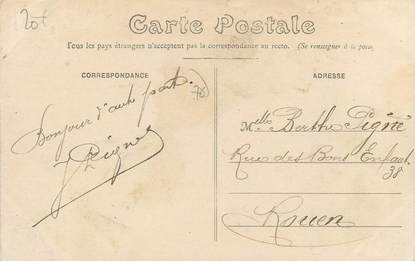 20f
Carte Postale
Tous les pays étrangers n'acceptent pas la correspondance au recto. (Se renseigner à la poste)
CORRESPONDANCE
ADRESSE
76
Bonjour d'
Melles Berthe Pigné
Rue des Bons Enfants
38
Rouen